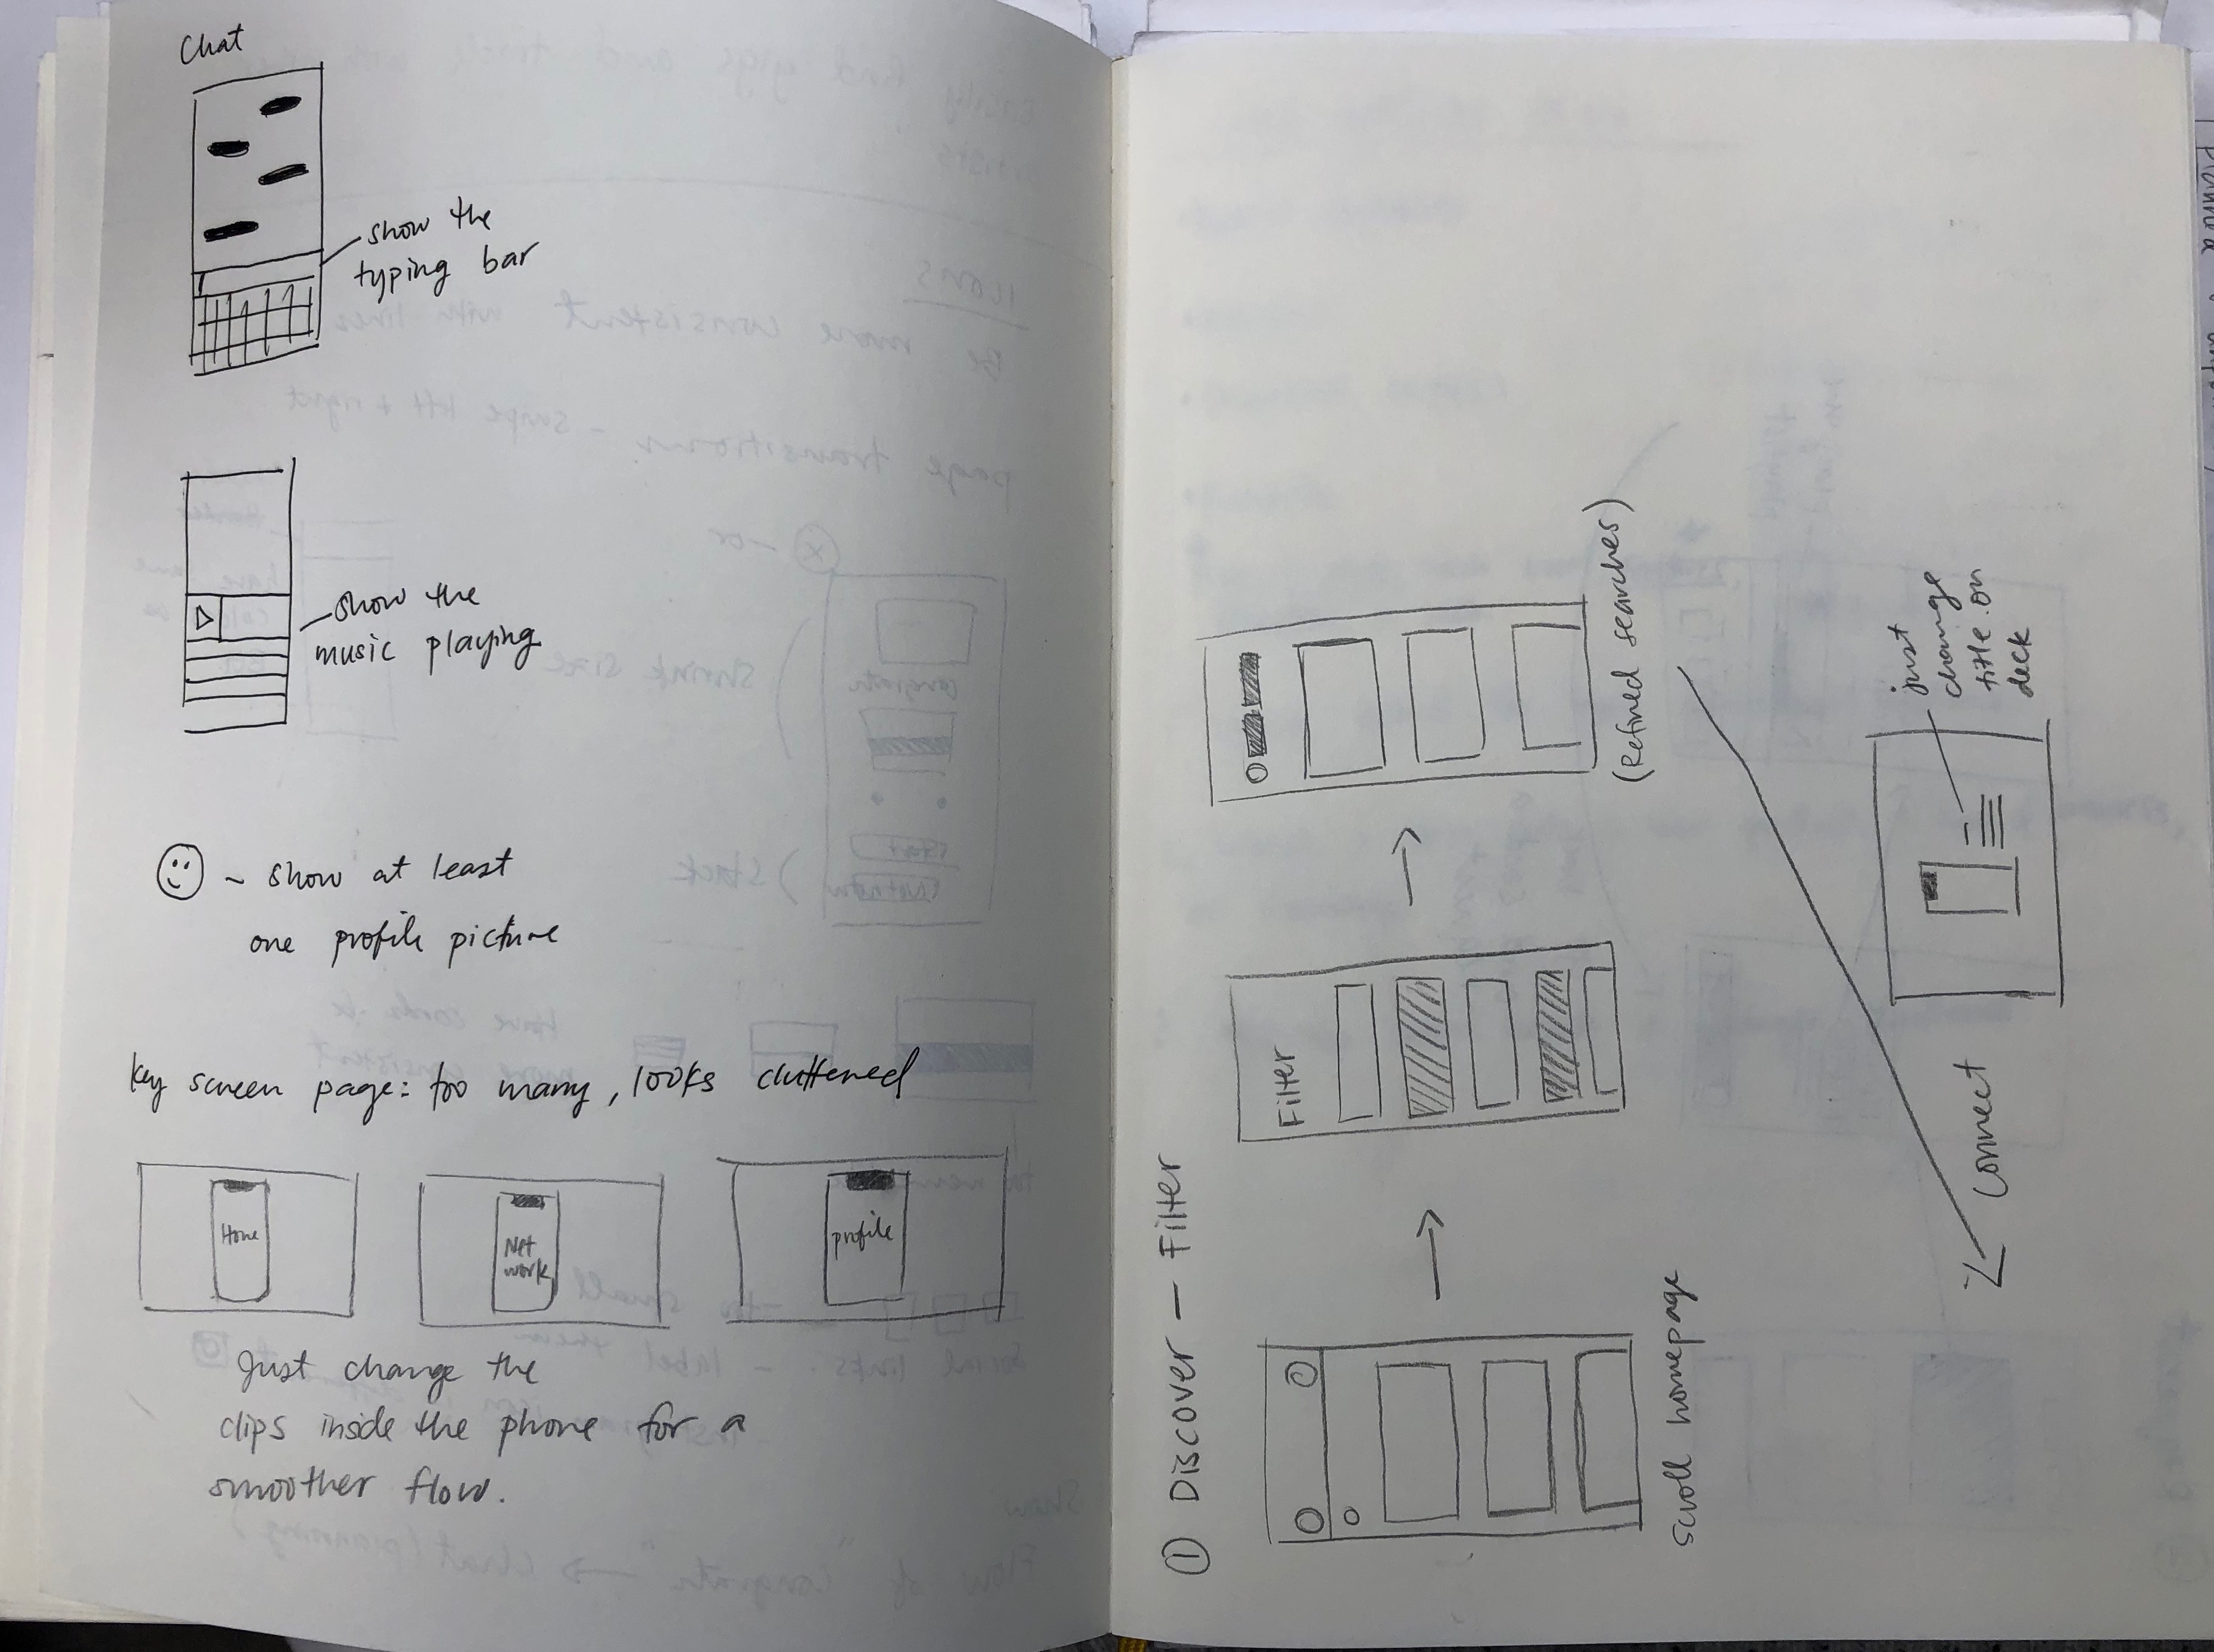 Chat
show the
typing bar
show the
music playing
- show at least
one profile picture
key screen page: too many, looks cluttered
Home
Net
work
profile
Just change the
clips inside the phone for a
smoother flow.
① Discover - Filter
scroll homepage
Filter
(Refined searches)
connect
just
change
title on
deck